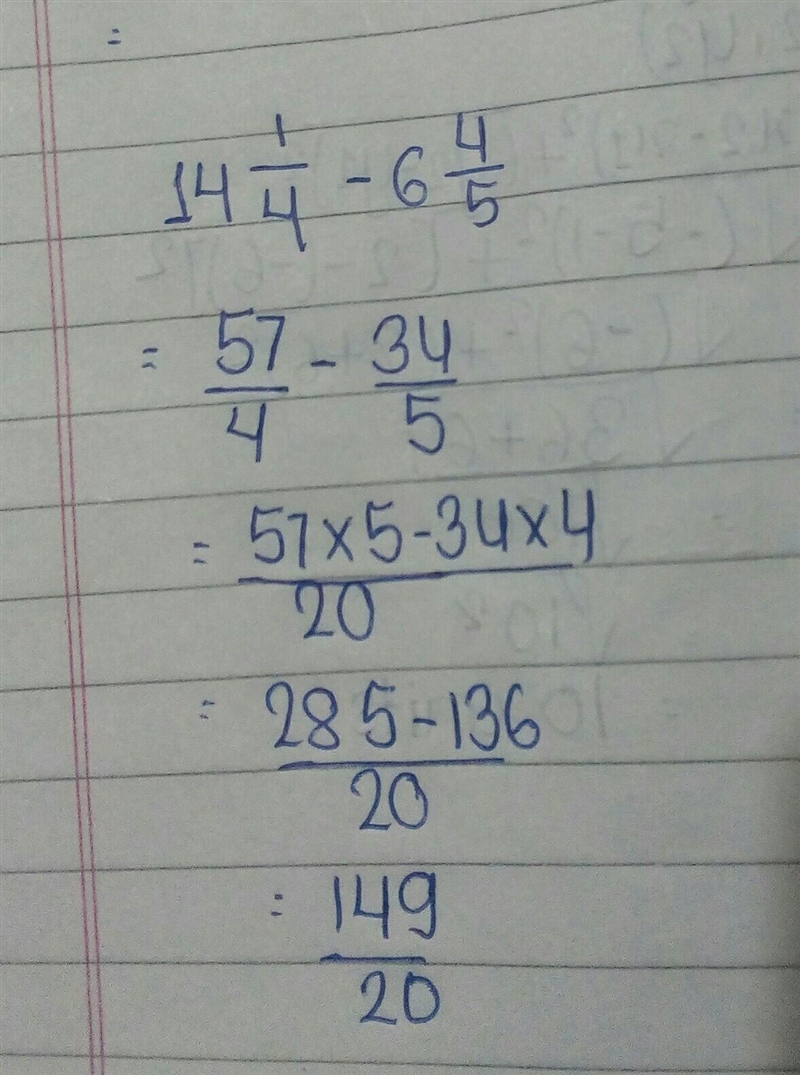 =
14 1/4 - 6 4/5
= 57/4 - 34/5
= 57×5-34×4/20
= 285-136/20
= 149/20